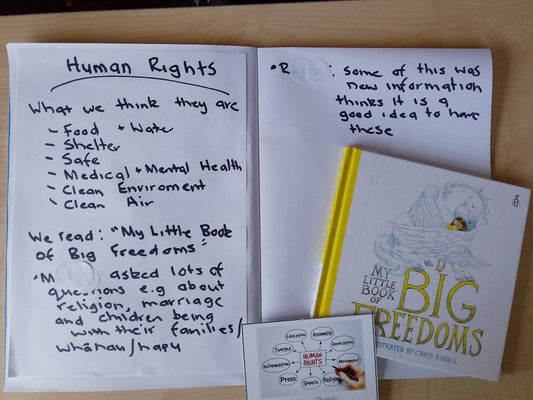 Human Rights
What we think they are
- Food + Water
- Shelter
- Safe
- Medical + Mental Health
- Clean Enviroment
- Clean Air
We read: "My Little Book
of Big Freedoms"
• M asked lots of
questions e.g about
religion, marriage
and children being
with their families/
whānau/hapu
• R : some of this was
new information
thinks it is a
good idea to have
these
MY
LITTLE
BOOK
OF
BIG
FREEDOMS
ILLUSTRATED BY CHRIS RIDDELL
Education
Assembly
Thought
Association
HUMAN
RIGHTS
Information
Movement
Press
Speech
Religion
Rights